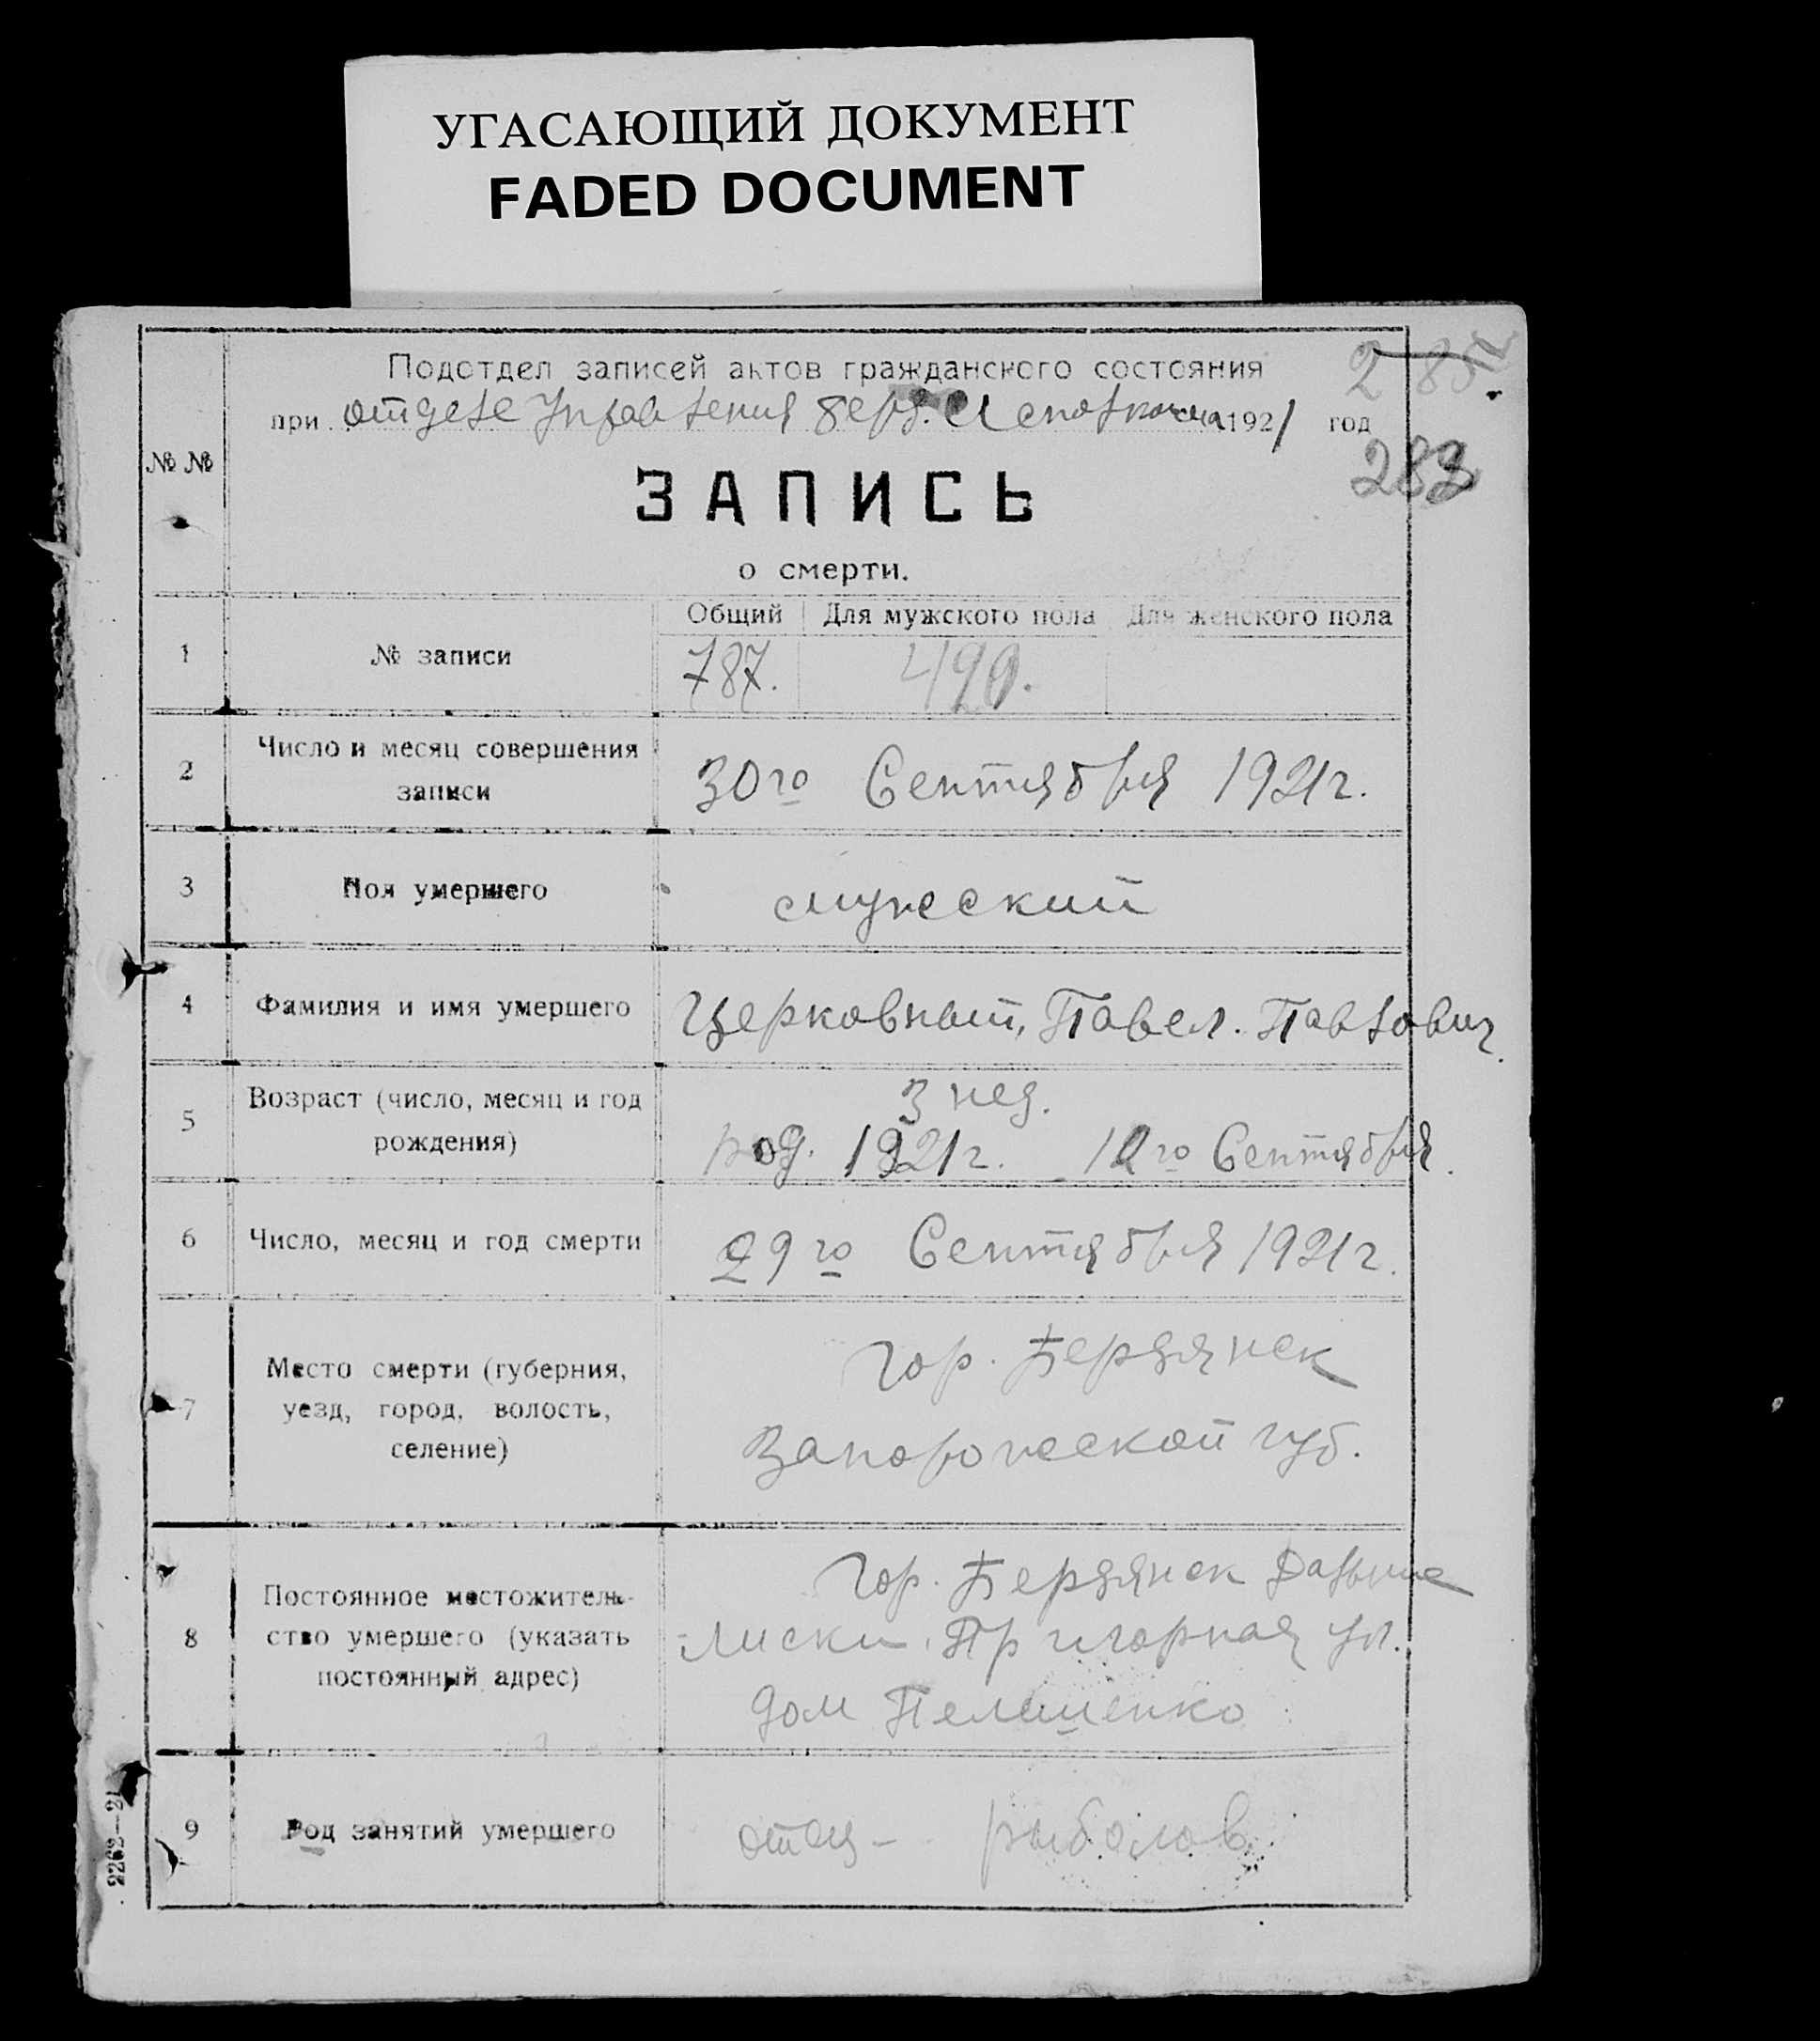 УГАСАЮЩИЙ ДОКУМЕНТ
FADED DOCUMENT
Подотдел записей актов гражданского состояния
при отделе Управления Берд. Исполкома 1921 год
283
№ №
ЗАПИСЬ
о смерти.
Общий Для мужского пола Для женского пола
1 № записи 787. 490.
2 Число и месяц совершения
записи
30го Сентября 1921г.
3 Пол умершего мужеский
4 Фамилия и имя умершего Церковный, Павел. Павлович.
5 Возраст (число, месяц и год
рождения)
3 нед.
род. 1921г. 12го Сентября.
6 Число, месяц и год смерти 29го Сентября 1921г.
7 Место смерти (губерния,
уезд, город, волость,
селение)
Гор. Бердянск
Запорожеской губ.
8 Постоянное местожитель-
ство умершего (указать
постоянный адрес)
Гор. Бердянск Дальние
Лиски. Пригорная ул.
дом
9 Род занятий умершего отец – рыболов
2262—21